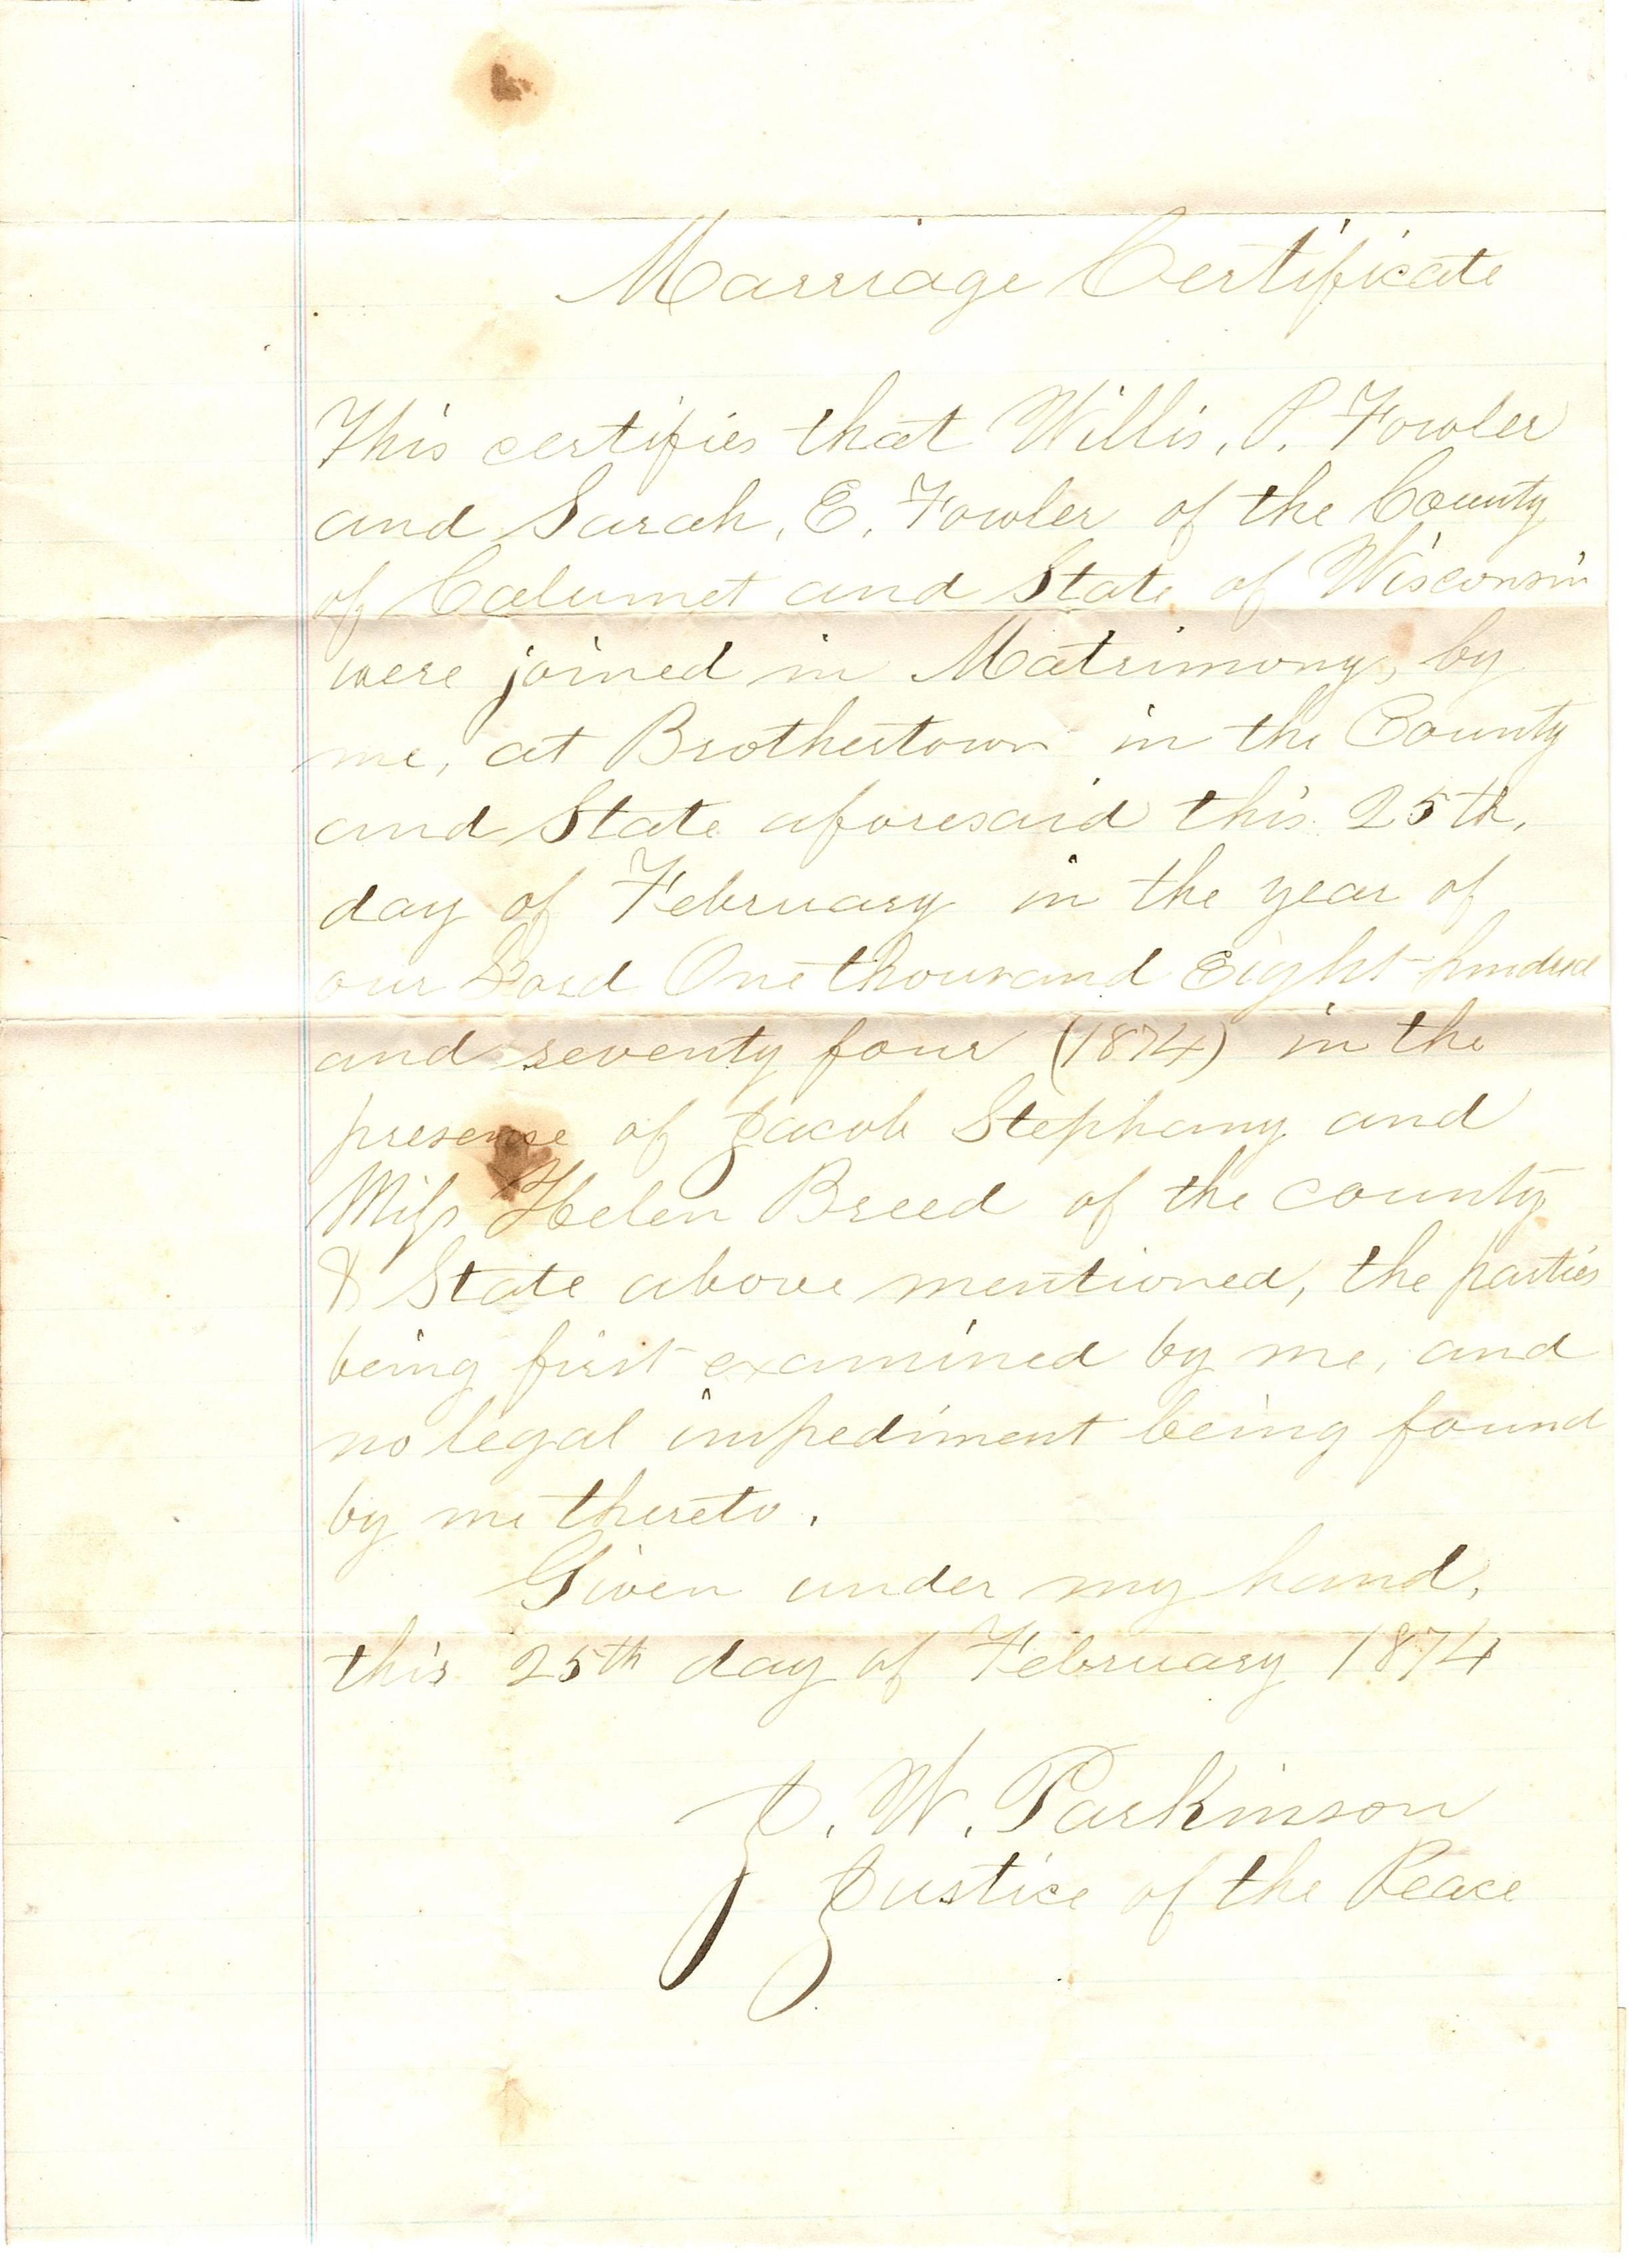 Marriage Certificate
This certifies that Willis, P. Fowler
and Sarah, E, Fowler of the County
of Calumet and State of Wisconsin
were joined in Matrimony, by
me, at Brothertown in the County
and State aforesaid this 25th,
day of February in the year of
our Lord One thousand Eight hundred
and seventy four (1874) in the
presense of Jacob Stephany and
Miss Helen Breed of the county
& State above mentioned, the parties
being first examined by me, and
no legal impediment being found
by me thereto.
Given under my hand,
this 25th day of February 1874
J. W. Parkinson
Justice of the Peace